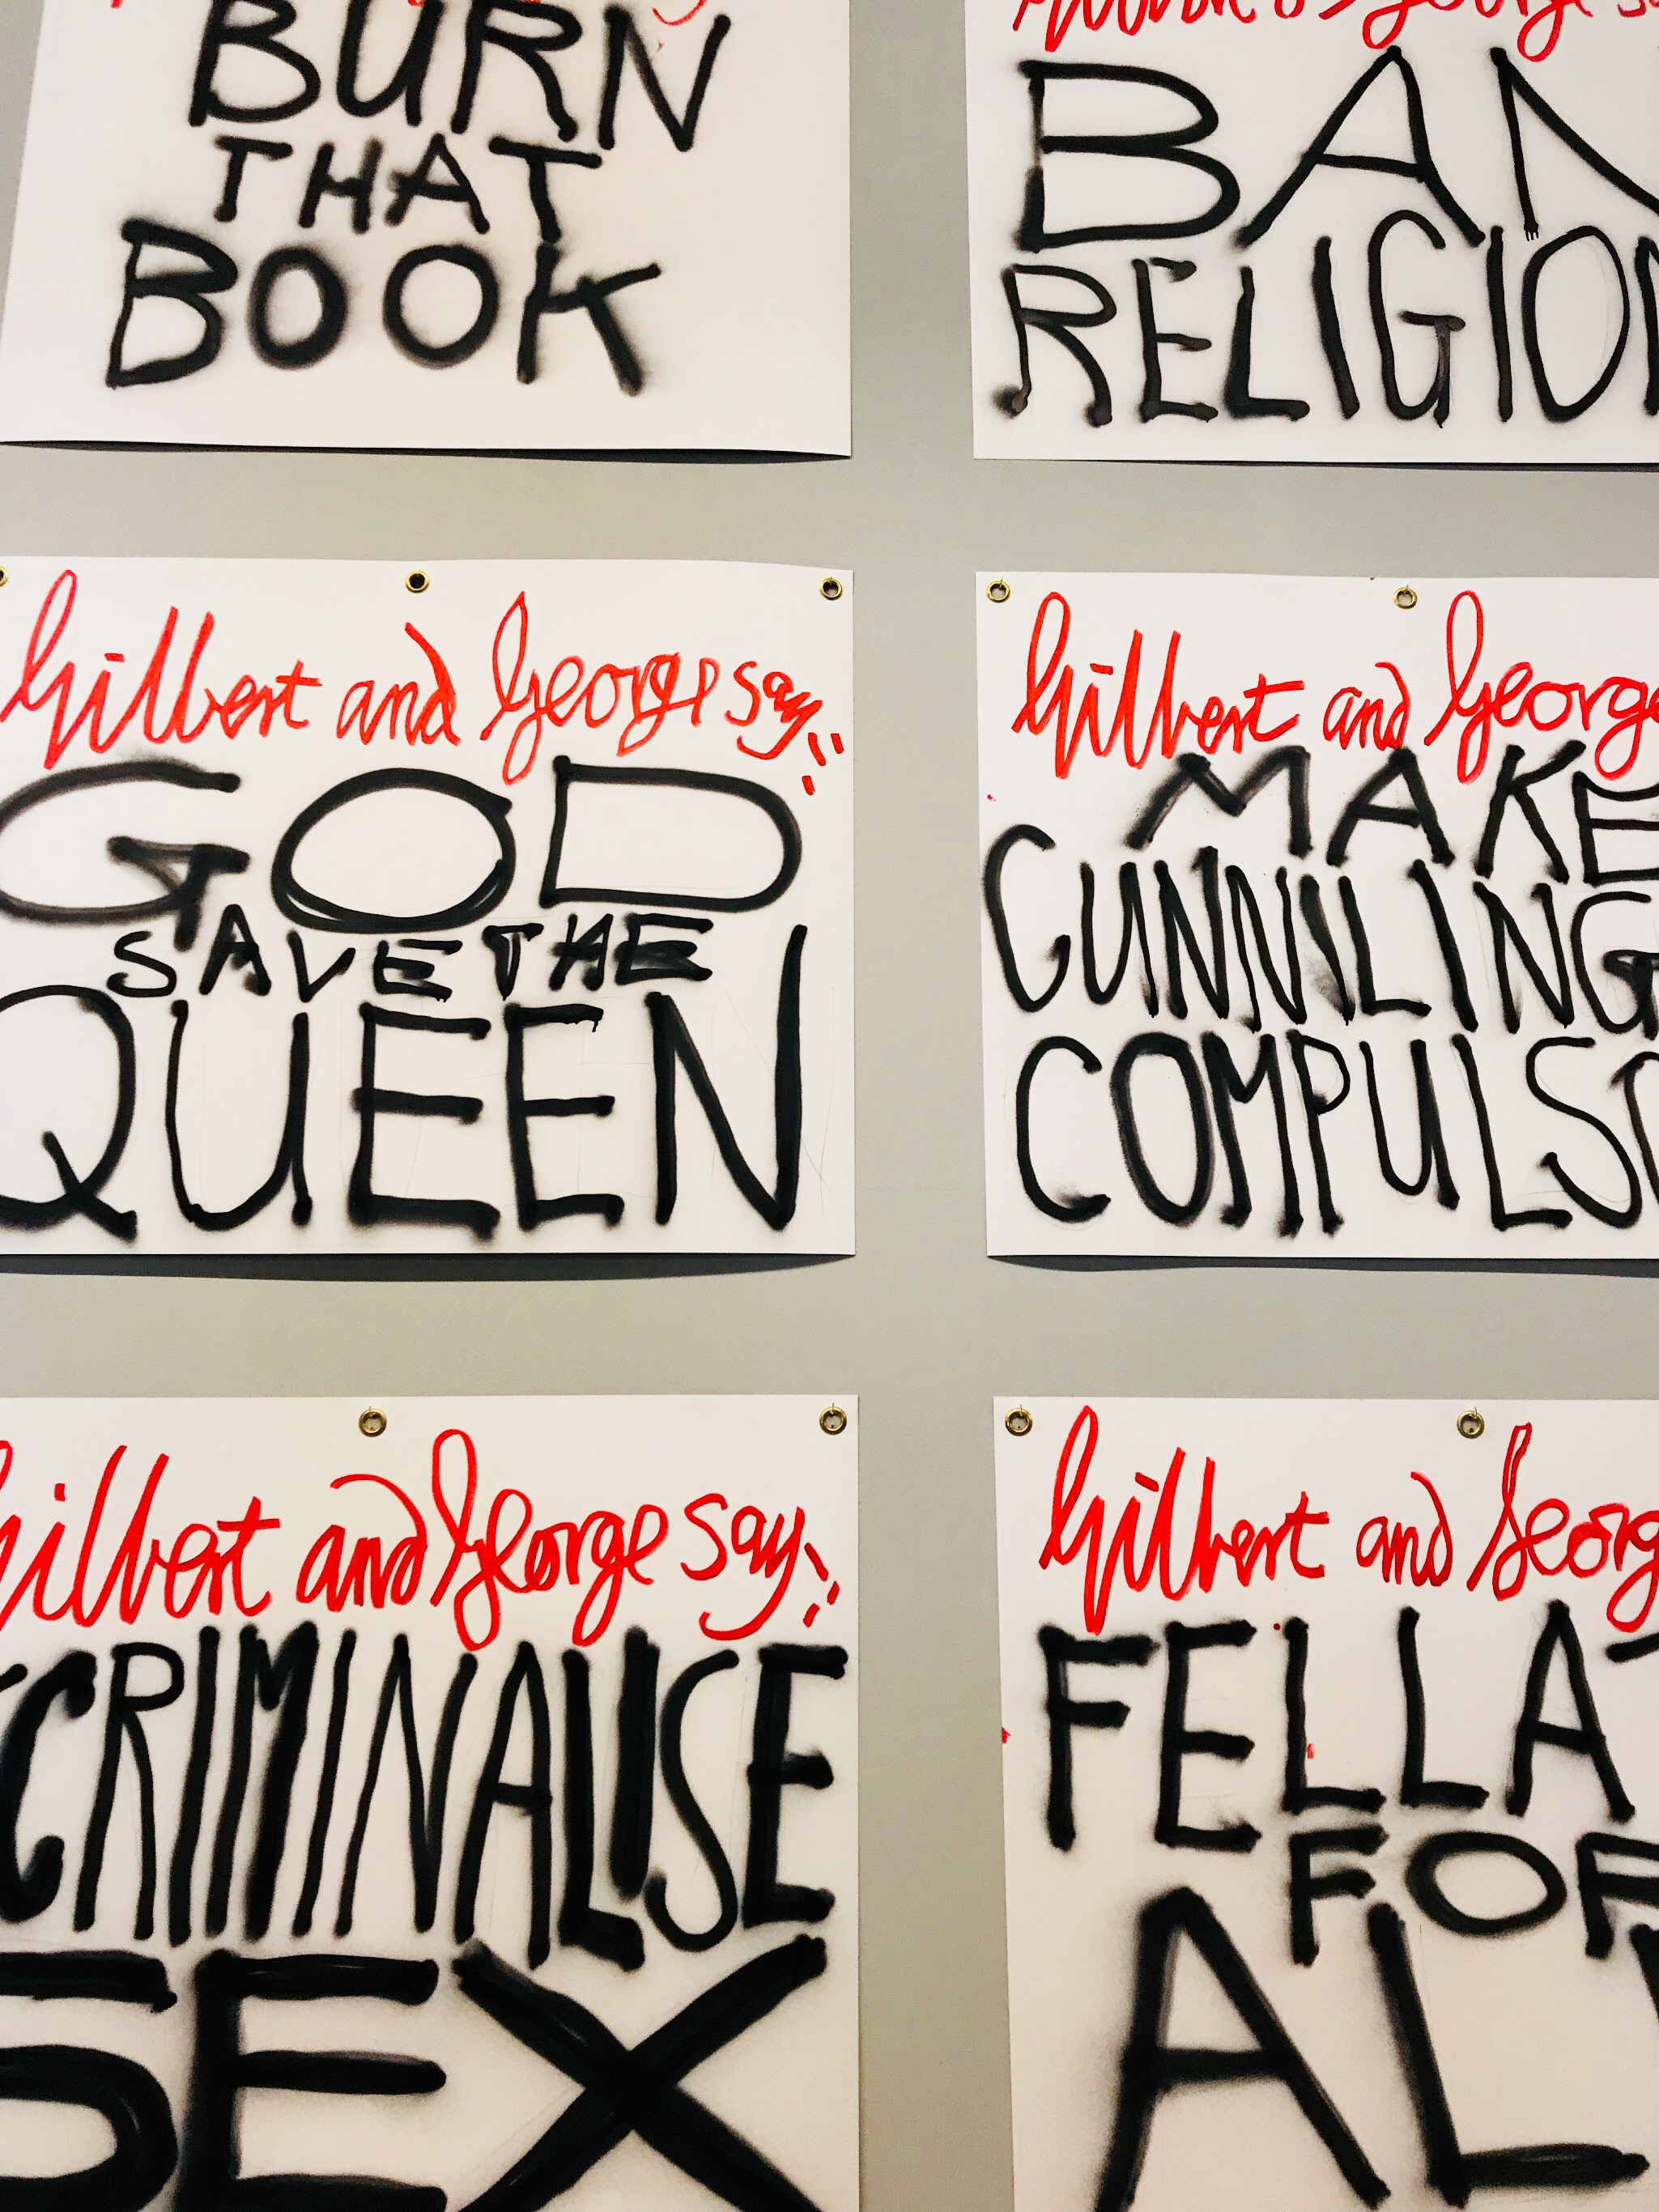 BURN
THAT
BOOK
BAN
RELIGION
Gilbert and George say:"
GOD
SAVE THE
QUEEN
Gilbert and George
MAKE
CUNNILING
COMPULSO
Gilbert and George say:"
CRIMINALISE
SEX
Gilbert and Georg
FELLAT
FOR
ALL